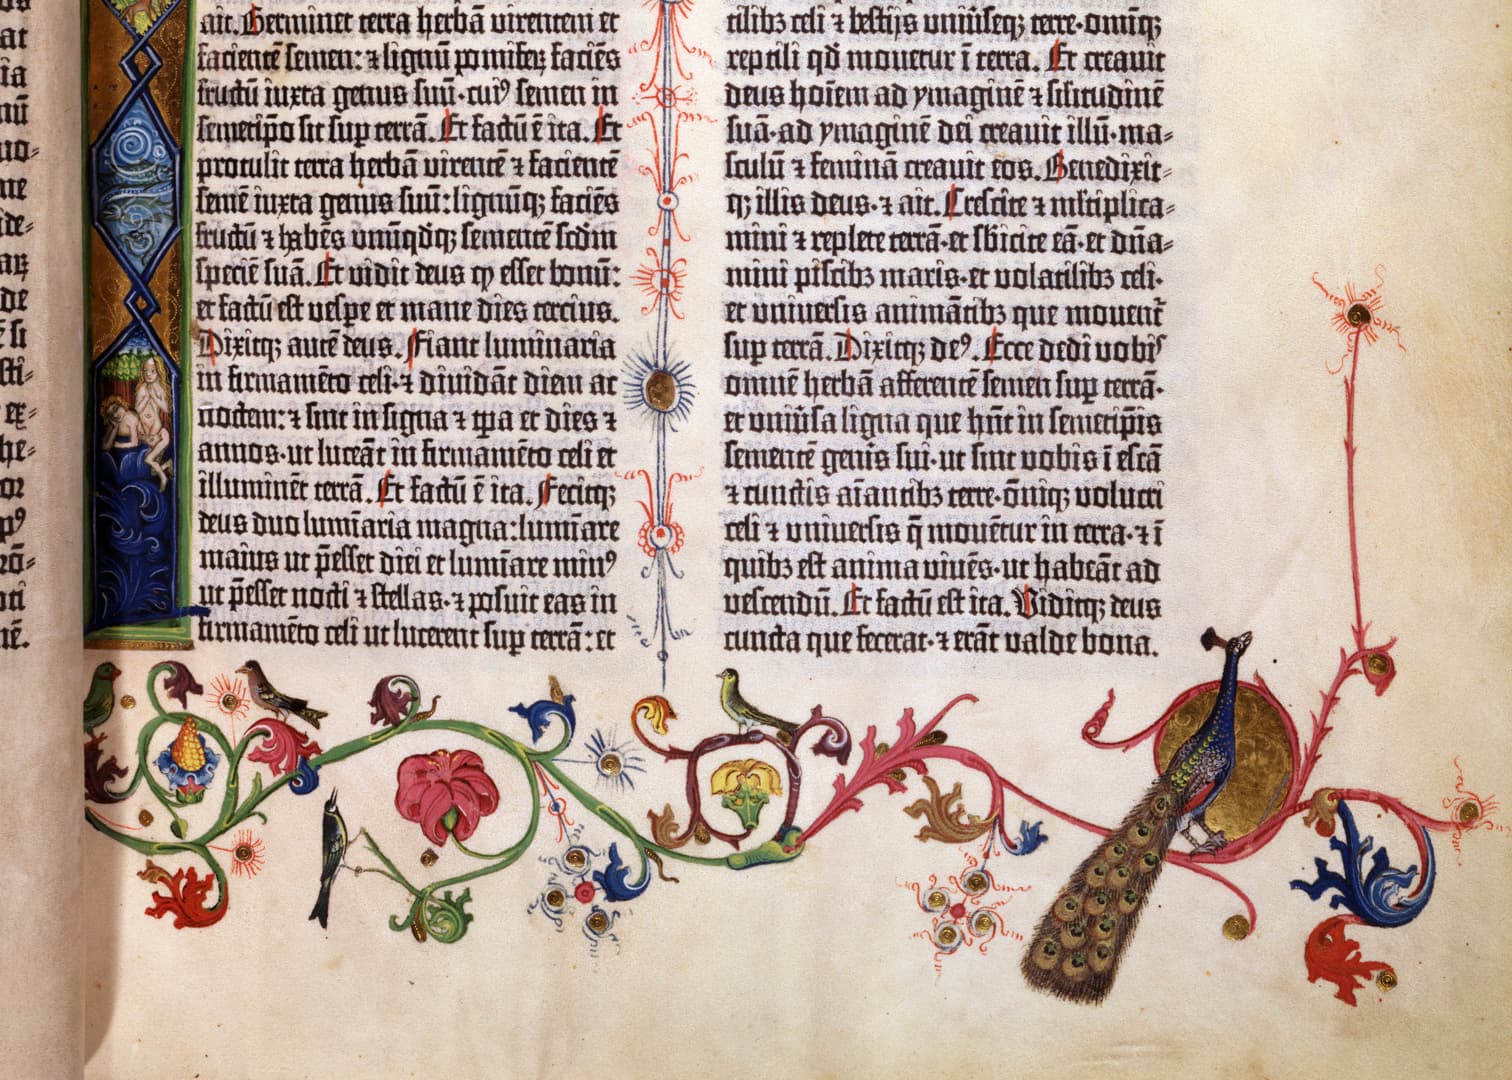 ait. Germinet terra herbā virentem et
facientē semen: ⁊ lignū pomiferꝫ faciēs
fructū iuxta genus suū · cuiꝰ semen in
semetip̄o sit sup terrā. Et factū ē ita. Et
protulit terra herbā virentē ⁊ facientē
semē iuxta genus suū: lignūqꝫ faciēs
fructū ⁊ habēs unūqdqꝫ sementē scd̄m
speciē suā. Et vidit deus ꝙ esset bonū:
et factū est vesꝑe et mane dies tercius.
Dixitqꝫ autē deus. Fiant luminaria
in firmamēto celi · ⁊ dividāt diem ac
noctem: ⁊ sint in signa ⁊ tp̄a et dies ⁊
annos · ut luceāt in firmamēto celi et
illuminēt terrā. Et factū ē ita. Fecitqꝫ
deus duo lumīaria magna: lumīare
maius ut p̄esset diei et lumīare minꝰ
ut p̄esset nocti ⁊ stellas · ⁊ posuit eas in
firmamēto celi ut lucerent sup terrā: et
tilibꝫ celi ⁊ bestijs univ̄seqꝫ terre · omīqꝫ
reptili qd̄ movetur ī terra. Et creavit
deus hoīem ad ymaginē ⁊ sil̄itudinē
suā · ad ymaginē dei creavit illū · ma⸗
sculū ⁊ feminā creavit eos. Benedixit⸗
qꝫ illis deus · ⁊ ait. Crescite ⁊ ml̄tiplica⸗
mini ⁊ replete terrā · et sb̄icite eā · et dn̄a⸗
mini piscibꝫ maris · et volatilibꝫ celi ·
et universis animātibꝫ que movent᷑
sup terrā. Dixitqꝫ deꝰ. Ecce dedi vobis
omnē herbā afferentē semen sup terrā ·
et univ̄sa ligna que hn̄t in semetip̄is
sementē genis̄ sui · ut sint vobis ī escā
⁊ cunctis aīantibꝫ terre · ōniqꝫ volucri
celi ⁊ universis q̄ movētur in terra · ⁊ ī
quibꝫ est anima vivēs · ut habeāt ad
vescendū. Et factū est ita. Viditqꝫ deus
cuncta que fecerat · ⁊ erāt valde bona.